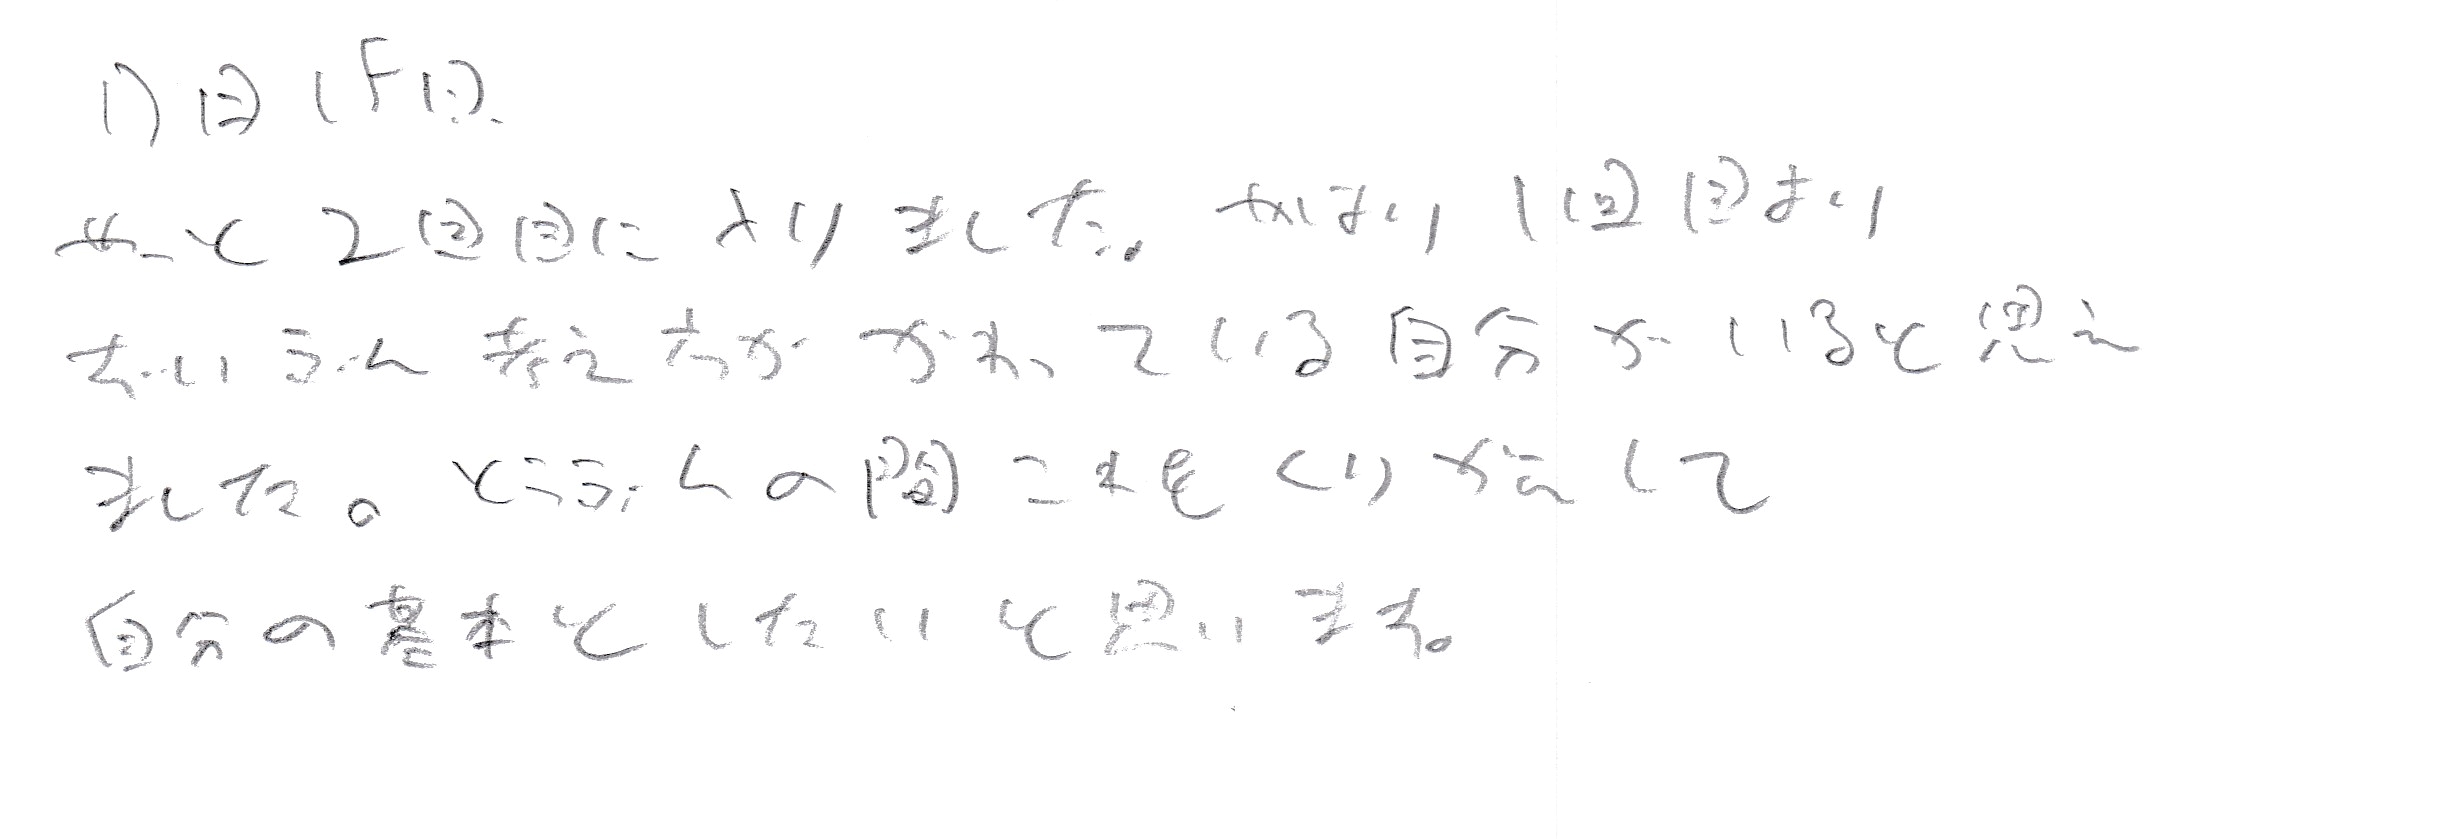 11月1日
やっと2回目に入りました。やはり1回目より
だいぶん考え方がかわっている自分がいると思え
ました。とうぶんの間これをくり返して
自分の基本としたいと思います。